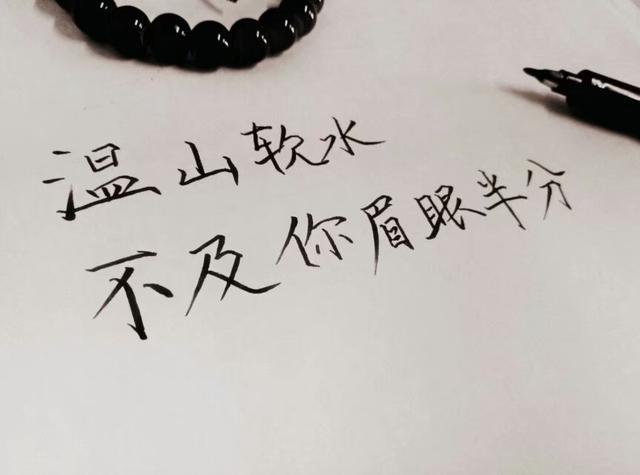 温山软水
不及你眉眼半分